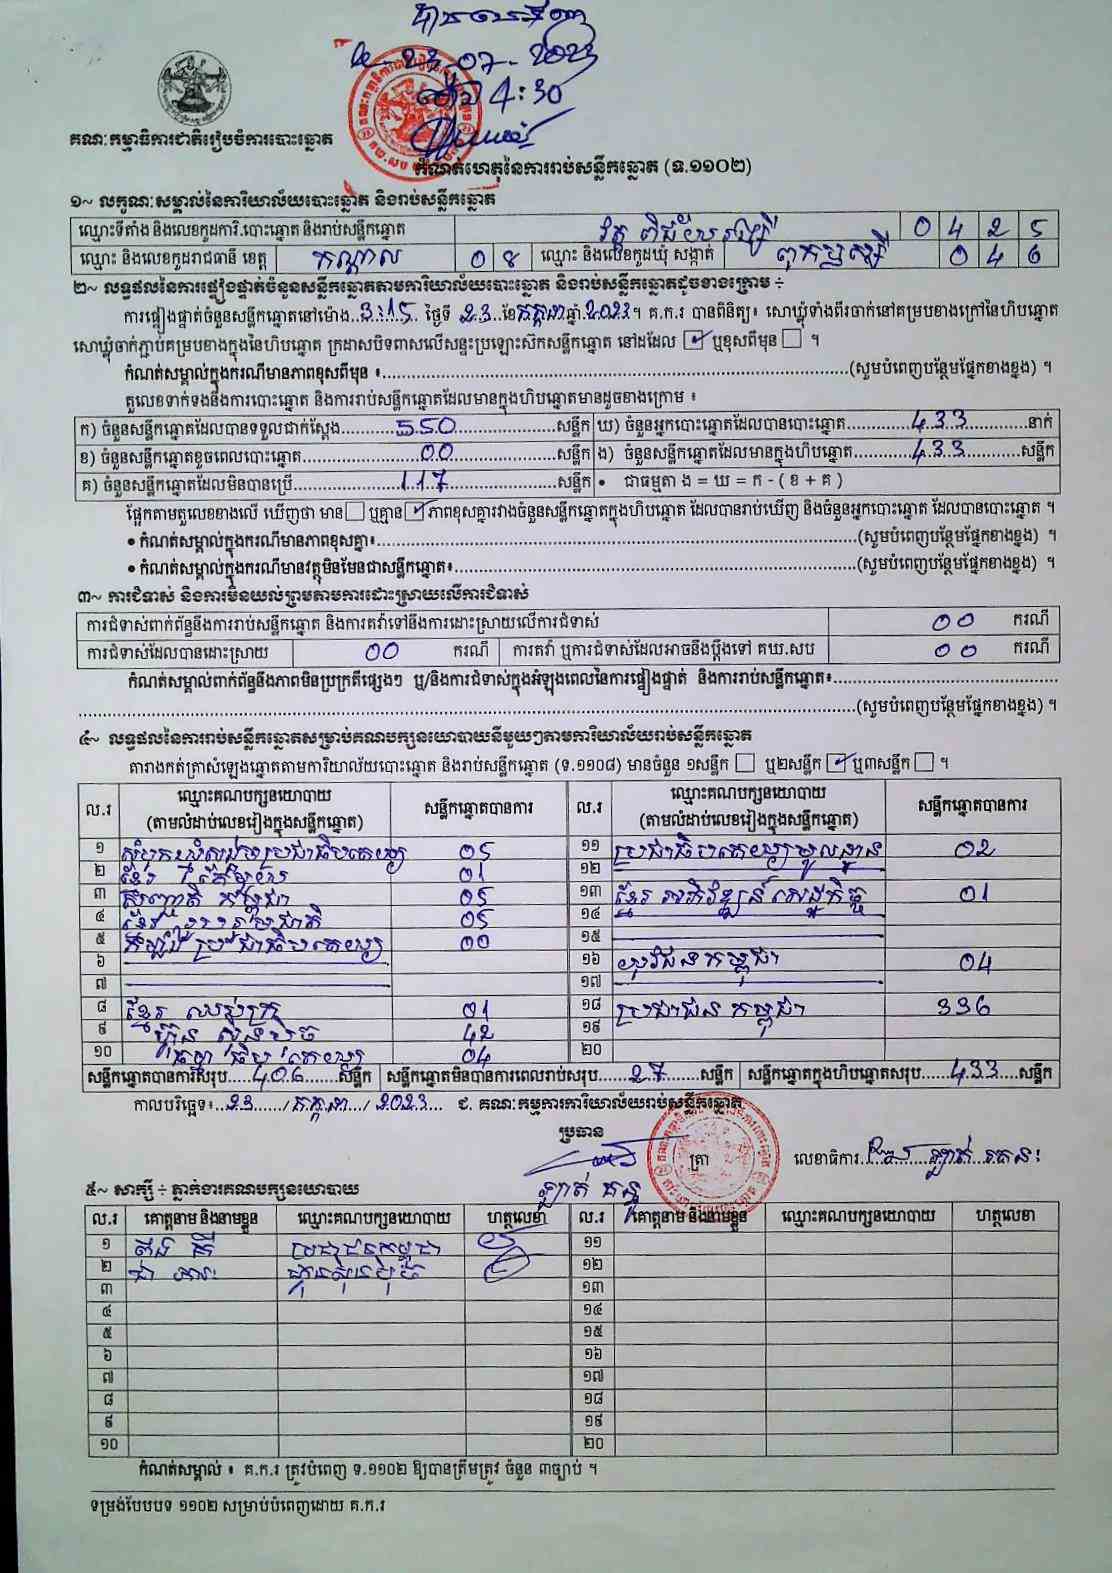 បាន
23.07.2023
ម៉ោង 4:30
គណៈកម្មាធិការជាតិរៀបចំការបោះឆ្នោត
កំណត់ហេតុនៃការរាប់សន្លឹកឆ្នោត (ទ.១១០២)
១~ លក្ខណៈសម្គាល់នៃការិយាល័យបោះឆ្នោត និងរាប់សន្លឹកឆ្នោត
ឈ្មោះទីតាំង និងលេខកូដការិ.បោះឆ្នោត និងរាប់សន្លឹកឆ្នោត វត្ត 0 4 2 5
ឈ្មោះ និងលេខកូដរាជធានី ខេត្ត កណ្តាល 0 8 ឈ្មោះ និងលេខកូដឃុំ សង្កាត់ 0 4 6
២~ លទ្ធផលនៃការផ្ទៀងផ្ទាត់ចំនួនសន្លឹកឆ្នោតតាមការិយាល័យបោះឆ្នោត និងរាប់សន្លឹកឆ្នោតដូចខាងក្រោម ÷
ការផ្ទៀងផ្ទាត់ចំនួនសន្លឹកឆ្នោតនៅម៉ោង..3:15.. ថ្ងៃទី 23 ខែកក្កដា ឆ្នាំ 2023។ គ.ក.រ បានពិនិត្យ៖ សោឃ្លុំទាំងពីរចាក់នៅគម្របខាងក្រៅនៃហិបឆ្នោត
សោឃ្លុំចាក់ភ្ជាប់គម្របខាងក្នុងនៃហិបឆ្នោត ក្រដាសបិទពាសលើសន្ទះប្រឡោះស៊កសន្លឹកឆ្នោត នៅដដែល ☑ ឬខុសពីមុន ☐ ។
កំណត់សម្គាល់ក្នុងករណីមានភាពខុសពីមុន ៖..........(សូមបំពេញបន្ថែមផ្នែកខាងខ្នង) ។
តួលេខទាក់ទងនឹងការបោះឆ្នោត និងការរាប់សន្លឹកឆ្នោតដែលមានក្នុងហិបឆ្នោតមានដូចខាងក្រោម ៖
ក) ចំនួនសន្លឹកឆ្នោតដែលបានទទួលជាក់ស្តែង..........550..........សន្លឹក ឃ) ចំនួនអ្នកបោះឆ្នោតដែលបានបោះឆ្នោត..........433..........នាក់
ខ) ចំនួនសន្លឹកឆ្នោតខូចពេលបោះឆ្នោត..........00..........សន្លឹក ង) ចំនួនសន្លឹកឆ្នោតដែលមានក្នុងហិបឆ្នោត..........433..........សន្លឹក
គ) ចំនួនសន្លឹកឆ្នោតដែលមិនបានប្រើ..........117..........សន្លឹក • ជាធម្មតា ង = ឃ = ក - ( ខ + គ )
ផ្អែកតាមតួលេខខាងលើ ឃើញថា មាន ☐ ឬគ្មាន ☑ ភាពខុសគ្នារវាងចំនួនសន្លឹកឆ្នោតក្នុងហិបឆ្នោត ដែលបានរាប់ឃើញ និងចំនួនអ្នកបោះឆ្នោត ដែលបានបោះឆ្នោត ។
• កំណត់សម្គាល់ក្នុងករណីមានភាពខុសគ្នា៖..........(សូមបំពេញបន្ថែមផ្នែកខាងខ្នង) ។
• កំណត់សម្គាល់ក្នុងករណីមានវត្ថុមិនមែនជាសន្លឹកឆ្នោត៖..........(សូមបំពេញបន្ថែមផ្នែកខាងខ្នង) ។
៣~ ការជំទាស់ និងការមិនយល់ព្រមតាមការដោះស្រាយលើការជំទាស់
ការជំទាស់ពាក់ព័ន្ធនឹងការរាប់សន្លឹកឆ្នោត និងការតវ៉ាទៅនឹងការដោះស្រាយលើការជំទាស់ 00 ករណី
ការជំទាស់ដែលបានដោះស្រាយ 00 ករណី ការតវ៉ា ឬការជំទាស់ដែលអាចនឹងប្តឹងទៅ គឃ.សប 00 ករណី
កំណត់សម្គាល់ពាក់ព័ន្ធនឹងភាពមិនប្រក្រតីផ្សេងៗ ឬ/និងការជំទាស់ក្នុងអំឡុងពេលនៃការផ្ទៀងផ្ទាត់ និងការរាប់សន្លឹកឆ្នោត៖..........
..........(សូមបំពេញបន្ថែមផ្នែកខាងខ្នង) ។
៤~ លទ្ធផលនៃការរាប់សន្លឹកឆ្នោតសម្រាប់គណបក្សនយោបាយនីមួយៗតាមការិយាល័យរាប់សន្លឹកឆ្នោត
តារាងកត់ត្រាសំឡេងឆ្នោតតាមការិយាល័យបោះឆ្នោត និងរាប់សន្លឹកឆ្នោត (ទ.១១០៨) មានចំនួន ១សន្លឹក ☐ ឬ២សន្លឹក ☑ ឬ៣សន្លឹក ☐ ។
ល.រ ឈ្មោះគណបក្សនយោបាយ (តាមលំដាប់លេខរៀងក្នុងសន្លឹកឆ្នោត) សន្លឹកឆ្នោតបានការ ល.រ ឈ្មោះគណបក្សនយោបាយ (តាមលំដាប់លេខរៀងក្នុងសន្លឹកឆ្នោត) សន្លឹកឆ្នោតបានការ
១ សំបុកឃ្មុំសង្គមប្រជាធិបតេយ្យ 05 ១១ ប្រជាធិបតេយ្យមូលដ្ឋាន 02
២ ខ្មែរ 01 ១២
៣ កម្ពុជា 05 ១៣ ខ្មែរ អភិវឌ្ឍន៍ សេដ្ឋកិច្ច 01
៤ ខ្មែររួបរួមជាតិ 05 ១៤
៥ កម្លាំង ប្រជាធិបតេយ្យ 00 ១៥
៦ ១៦ យុវជនកម្ពុជា 04
៧ ១៧
៨ ខ្មែរ 01 ១៨ ប្រជាជន កម្ពុជា 336
៩ ហ៊្វុនស៊ិនប៉ិច 42 ១៩
១០ ធម្មាធិបតេយ្យ 04 ២០
សន្លឹកឆ្នោតបានការសរុប.....406.....សន្លឹក សន្លឹកឆ្នោតមិនបានការពេលរាប់សរុប.....27.....សន្លឹក សន្លឹកឆ្នោតក្នុងហិបឆ្នោតសរុប.....433.....សន្លឹក
កាលបរិច្ឆេទ៖..23../ កក្កដា / 2023.. ជ. គណៈកម្មការការិយាល័យរាប់សន្លឹកឆ្នោត
ប្រធាន
ត្រា
លេខាធិការ
៥~ សាក្សី ÷ ភ្នាក់ងារគណបក្សនយោបាយ
ល.រ គោត្តនាម និងនាមខ្លួន ឈ្មោះគណបក្សនយោបាយ ហត្ថលេខា ល.រ គោត្តនាម និងនាមខ្លួន ឈ្មោះគណបក្សនយោបាយ ហត្ថលេខា
១ ប្រជាជនកម្ពុជា ១១
២ ហ៊្វុនស៊ិនប៉ិច ១២
៣ ១៣
៤ ១៤
៥ ១៥
៦ ១៦
៧ ១៧
៨ ១៨
៩ ១៩
១០ ២០
កំណត់សម្គាល់ ៖ គ.ក.រ ត្រូវបំពេញ ទ.១១០២ ឱ្យបានត្រឹមត្រូវ ចំនួន ៣ច្បាប់ ។
ទម្រង់បែបបទ ១១០២ សម្រាប់បំពេញដោយ គ.ក.រ